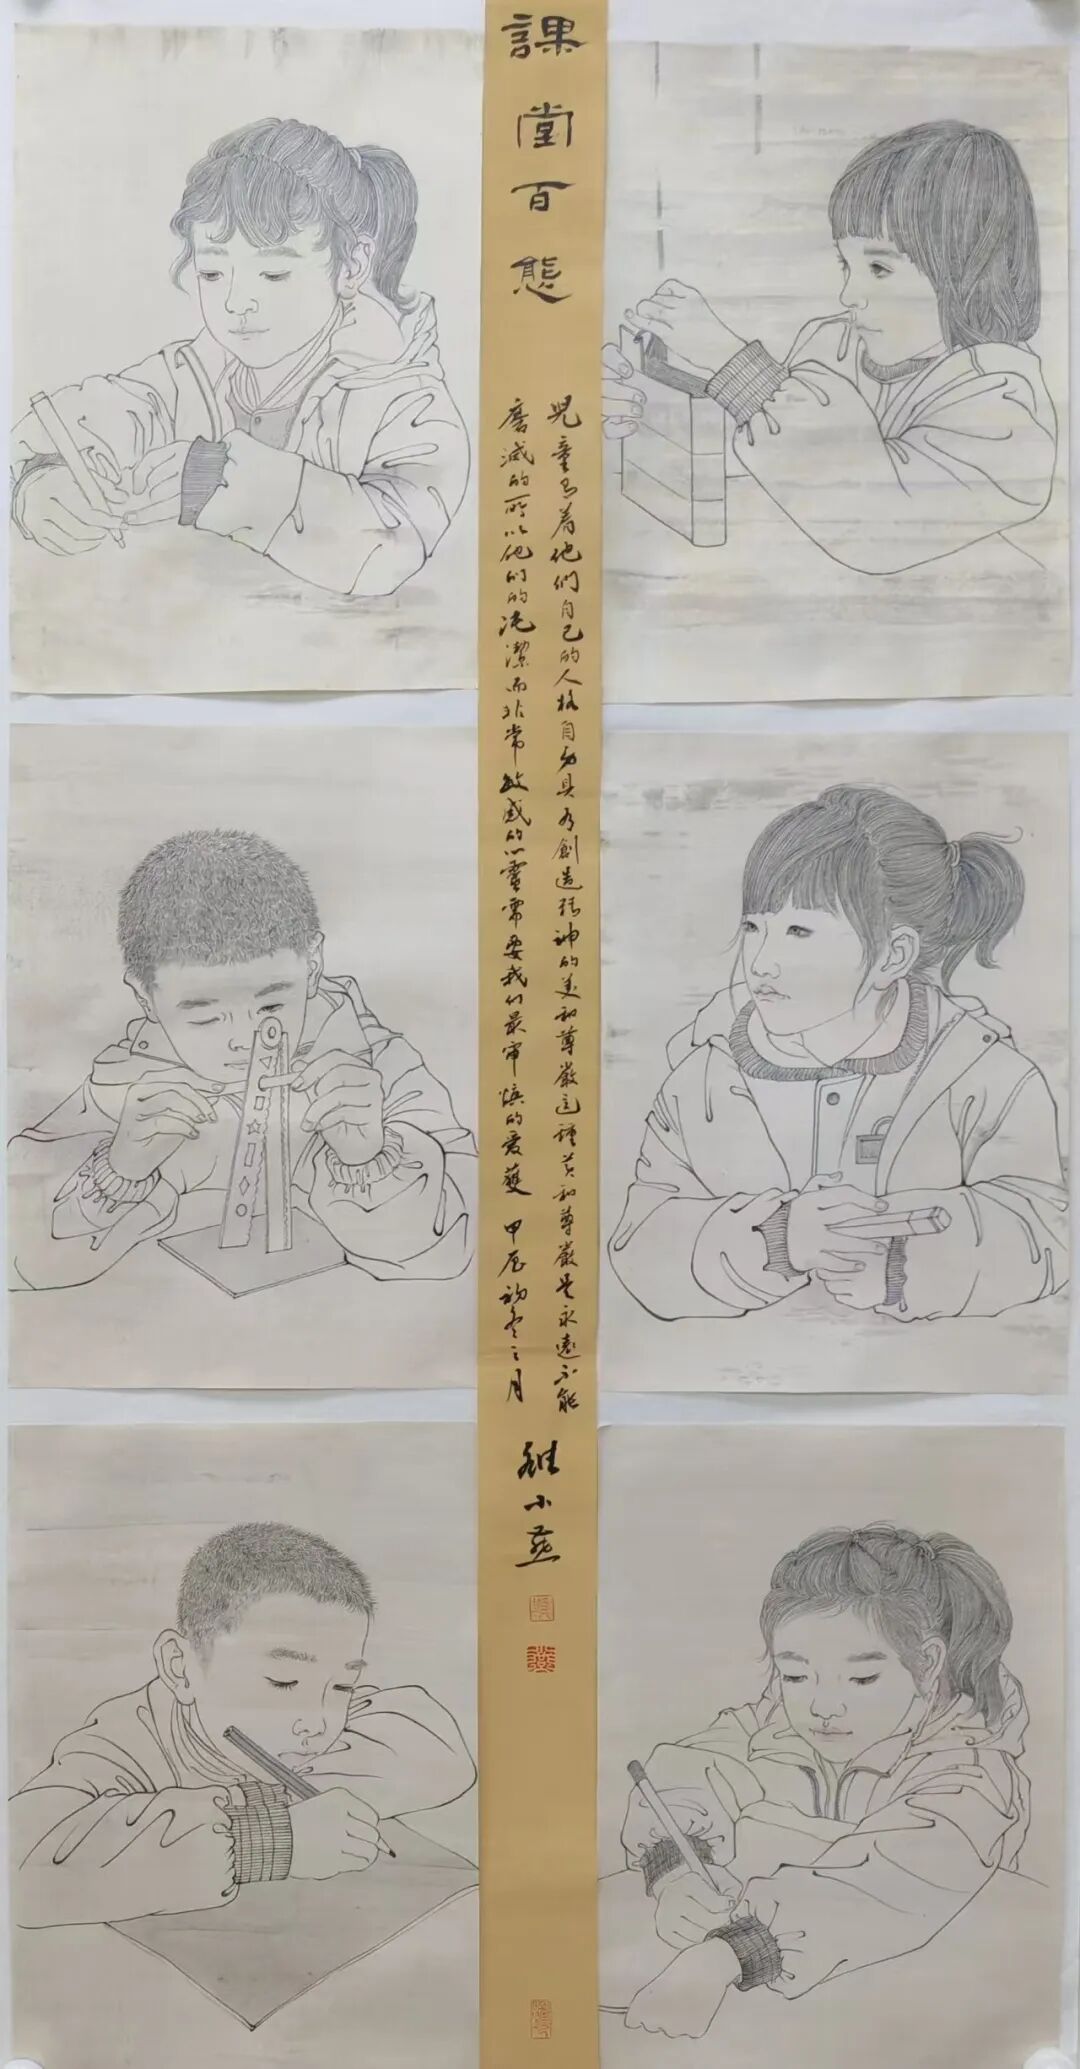 課堂百態
兒童有着他們自己的人格自身具有創造精神的美和尊嚴這種美和尊嚴是永遠不能
磨滅的所以他们的纯潔而非常敏感的心靈需要我们最审慎的爱護 甲辰初冬之月
雒小燕
燕